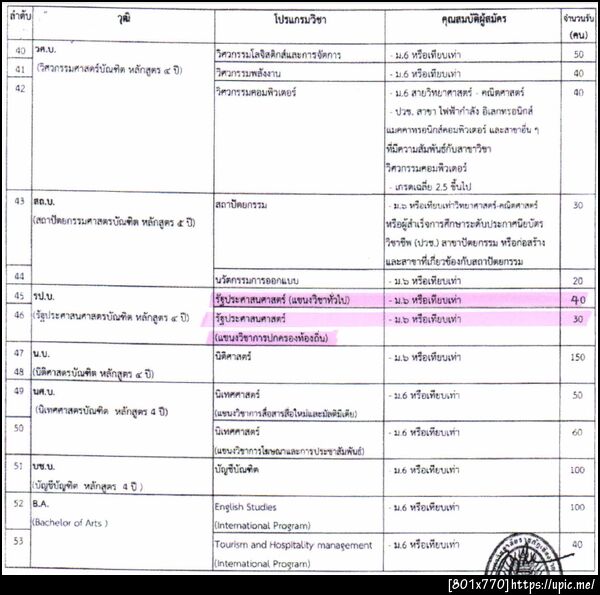 ลำดับ วุฒิ โปรแกรมวิชา คุณสมบัติผู้สมัคร จำนวนรับ
(คน)
40 วศ.บ. วิศวกรรมโลจิสติกส์และการจัดการ - ม.6 หรือเทียบเท่า 50
41 (วิศวกรรมศาสตร์บัณฑิต หลักสูตร ๔ ปี) วิศวกรรมพลังงาน - ม.6 หรือเทียบเท่า 40
42 วิศวกรรมคอมพิวเตอร์ - ม.6 สายวิทยาศาสตร์ - คณิตศาสตร์ 40
- ปวช. สาขา ไฟฟ้ากำลัง อิเลกทรอนิกส์
แมคคาทรอนิกส์คอมพิวเตอร์ และสาขาอื่น ๆ
ที่มีความสัมพันธ์กับสาขาวิชา
วิศวกรรมคอมพิวเตอร์
- เกรดเฉลี่ย 2.5 ขึ้นไป
43 สถ.บ. สถาปัตยกรรม - ม.๖ หรือเทียบเท่าวิทยาศาสตร์-คณิตศาสตร์ 30
(สถาปัตยกรรมศาสตรบัณฑิต หลักสูตร ๕ ปี) หรือผู้สำเร็จการศึกษาระดับประกาศนียบัตร
วิชาชีพ (ปวช.) สาขาปัตยกรรม หรือก่อสร้าง
และสาขาที่เกี่ยวข้องกับสถาปัตยกรรม
44 นวัตกรรมการออกแบบ - ม.๖ หรือเทียบเท่า 20
45 รป.บ. รัฐประศาสนศาสตร์ (แขนงวิชาทั่วไป) - ม.๖ หรือเทียบเท่า 40
46 (รัฐประศาสนศาสตรบัณฑิต หลักสูตร ๔ ปี) รัฐประศาสนศาสตร์ - ม.๖ หรือเทียบเท่า 30
(แขนงวิชาการปกครองท้องถิ่น)
47 น.บ. นิติศาสตร์ - ม.๖ หรือเทียบเท่า 150
48 (นิติศาสตรบัณฑิต หลักสูตร ๔ ปี)
49 นศ.บ. นิเทศศาสตร์ - ม.6 หรือเทียบเท่า 50
(นิเทศศาสตรบัณฑิต หลักสูตร 4 ปี) (แขนงวิชาการสื่อสารสื่อใหม่และมัลติมีเดีย)
50 นิเทศศาสตร์ - ม.6 หรือเทียบเท่า 60
(แขนงวิชาการโฆษณาและการประชาสัมพันธ์)
51 บช.บ. บัญชีบัณฑิต - ม.6 หรือเทียบเท่า 100
(บัญชีบัญฑิต หลักสูตร 4 ปี )
52 B.A. English Studies - ม.6 หรือเทียบเท่า 100
(Bachelor of Arts ) (International Program)
53 Tourism and Hospitality management - ม.6 หรือเทียบเท่า 40
(International Program)
[801x770]https://upic.me/